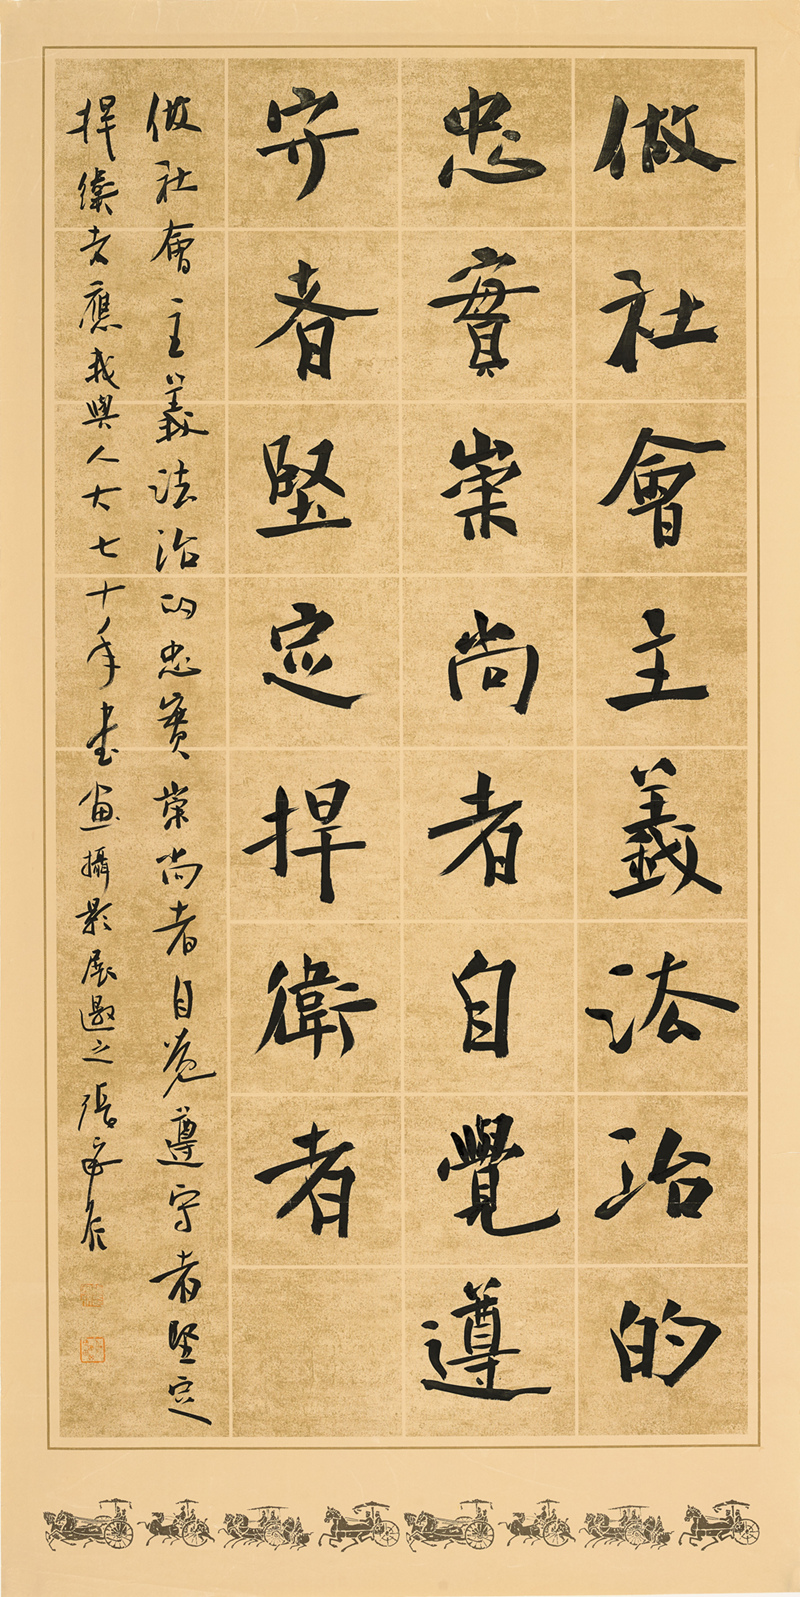 做社會主義法治的
忠實崇尚者自覺遵
守者堅定捍衛者
做社會主義法治的忠實崇尚者自覺遵守者堅定
捍衛者應我與人大七十年書画攝影展邀之張